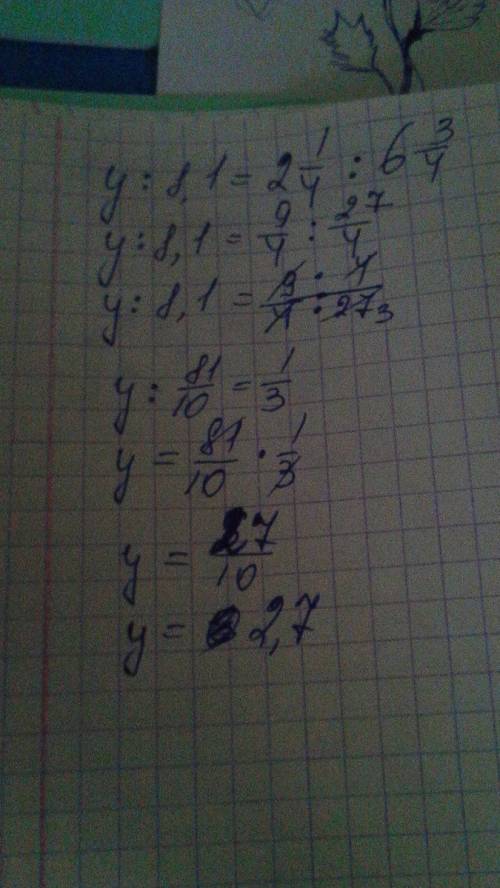 y : 8,1 = 2 1/4 : 6 3/4
y : 8,1 = 9/4 : 27/4
y : 8,1 = 9 · 4 / 4 · 27 3
y : 81/10 = 1/3
y = 81/10 · 1/3
y = 27/10
y = 2,7